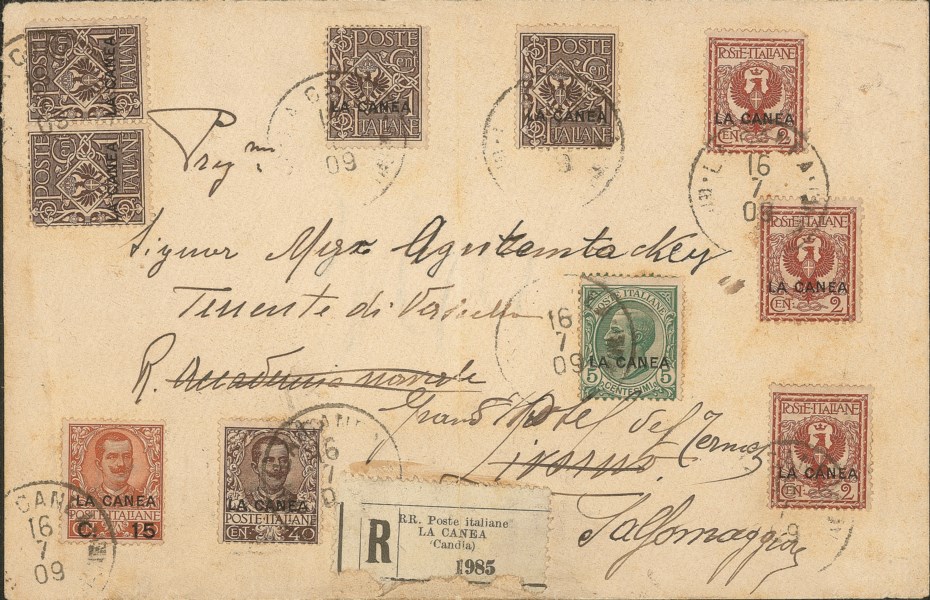 POSTE
1 Cent
LA CANEA
ITALIANE
POSTE
1 Cent
LA CANEA
ITALIANE
POSTE
Cent 1
LA CANEA
ITALIANE
POSTE
Cent 1
LA CANEA
ITALIANE
POSTE ITALIANE
LA CANEA
CEN. 2
16
7
09
Preg.mo
Signor
Tenente di Vascello
R. Accademia navale
Grand Hotel des Termes
Livorno
Salsomaggiore
POSTE ITALIANE
LA CANEA
CEN. 2
POSTE ITALIANE
LA CANEA
5 CENTESIMI 5
16
7
09
POSTE ITALIANE
LA CANEA
CEN. 2
LA CANEA
POSTE ITALIANE
C. 15
LA CANEA
POSTE ITALIANE
CEN. 40
CANEA
16
7
09
R
RR. Poste italiane
LA CANEA
(Candia)
1985